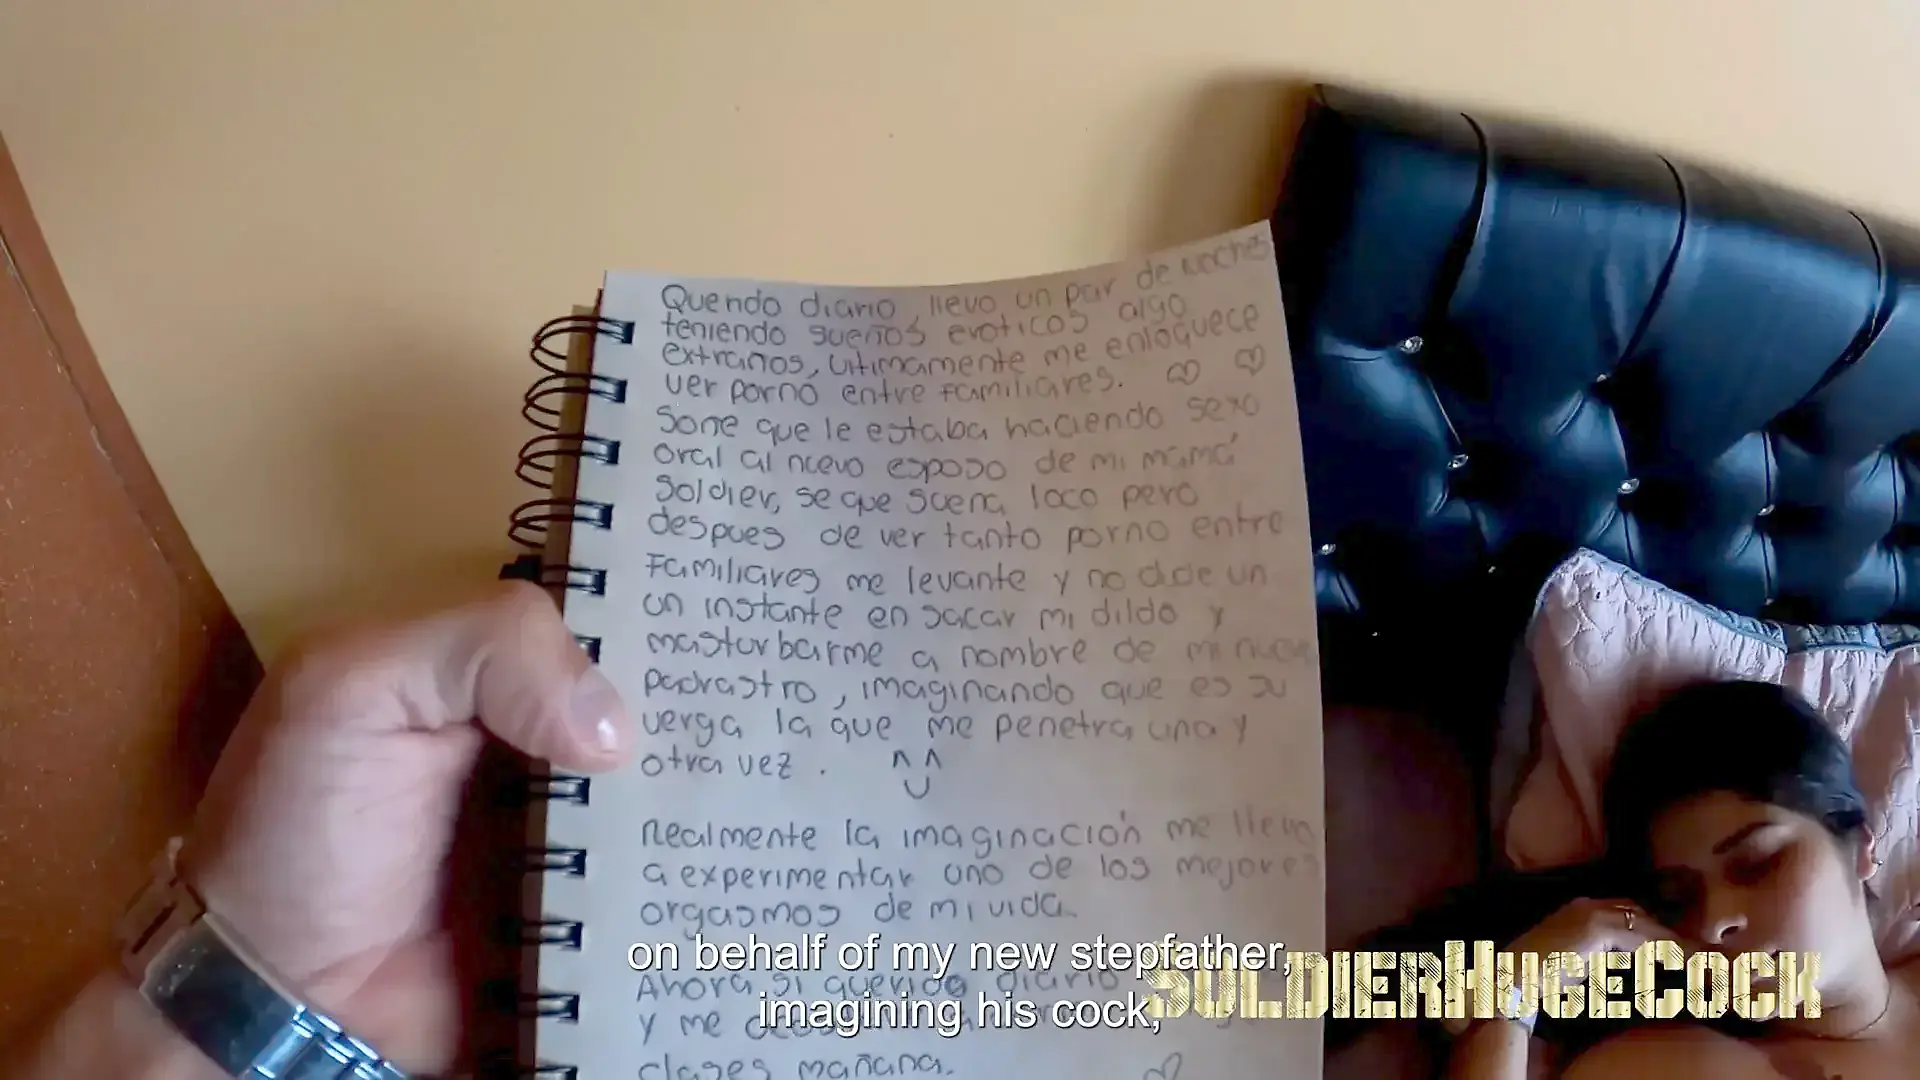 Querido diario, llevo un par de noches
teniendo sueños eroticos algo
extraños, ultimamente me enloquece
ver porno entre familiares.
Soñe que le estaba haciendo sexo
oral al nuevo esposo de mi mamá
Soldier, se que suena loco pero
despues de ver tanto porno entre
Familiares me levante y no dude un
un instante en sacar mi dildo y
masturbarme a nombre de mi nuevo
padrastro, imaginando que es su
verga la que me penetra una y
otra vez.
Realmente la imaginación me lleva
a experimentar uno de los mejores
orgasmos de mi vida.
Ahora si querido diario
y me
clases mañana.
on behalf of my new stepfather,
imagining his cock,
SOLDIERHUGECOCK